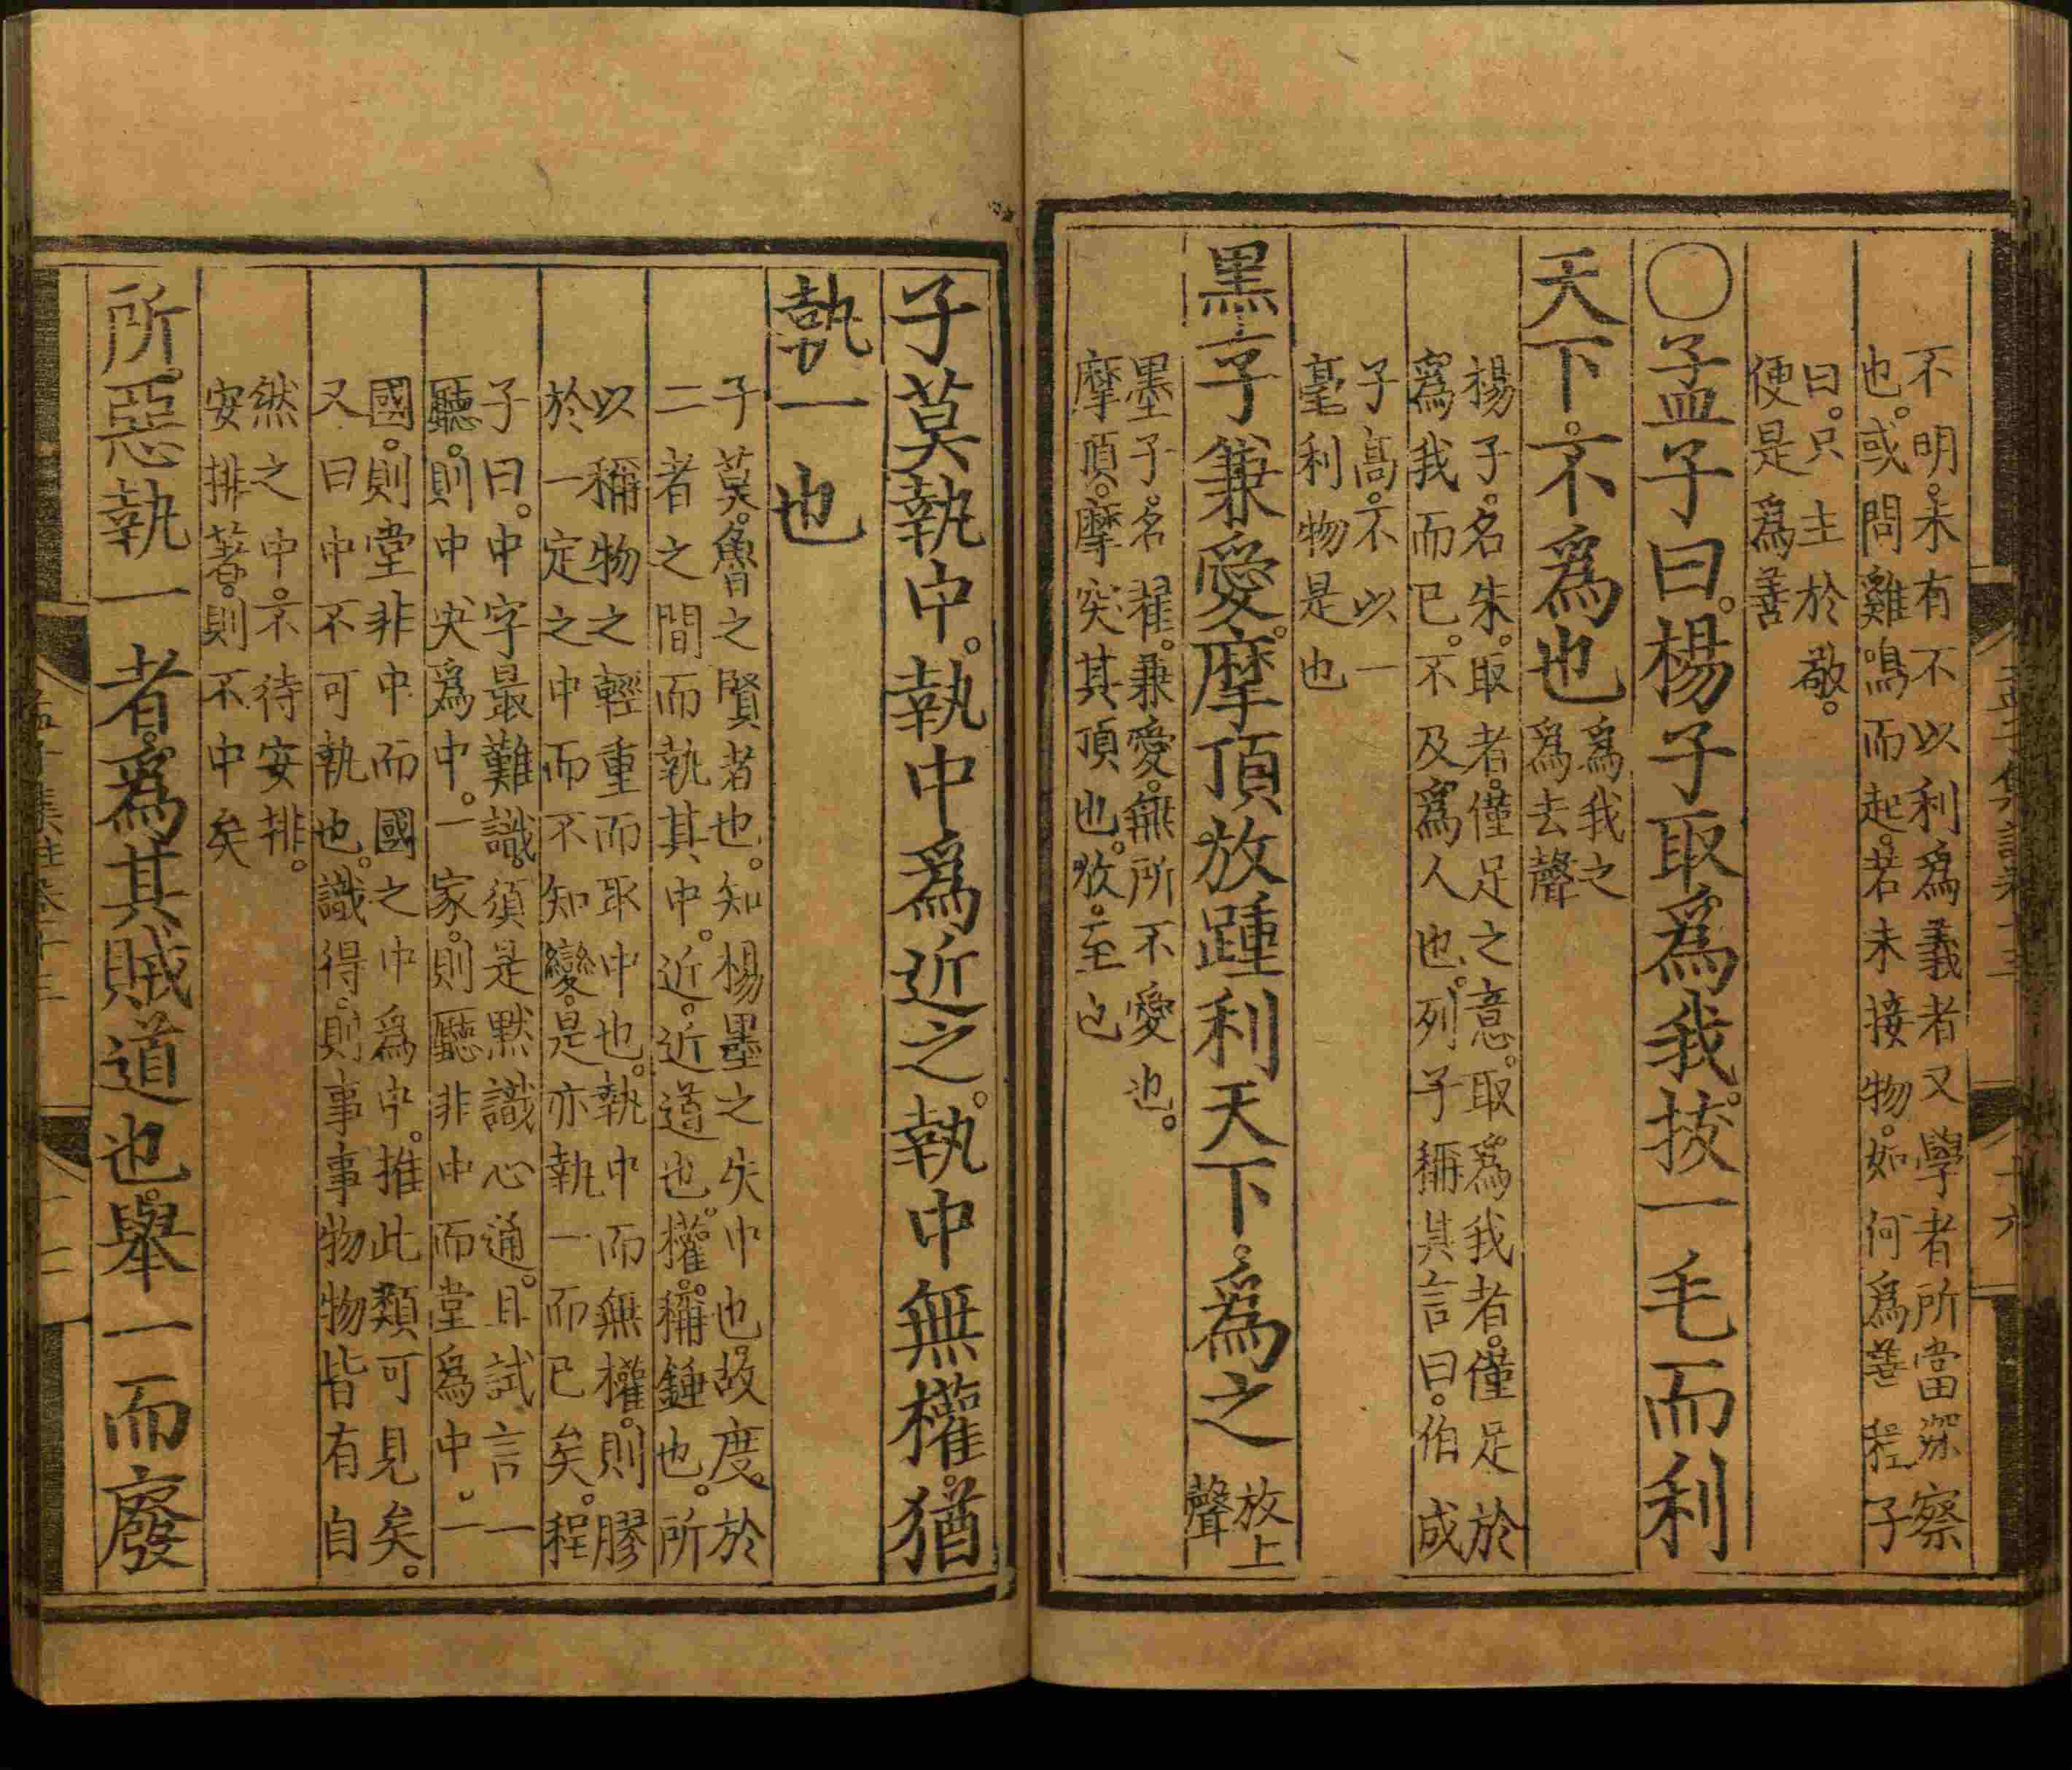 不明。未有不以利爲義者又學者所當深察
也。或問雞鳴而起。若未接物。如何爲善程子
曰。只主於敬。
便是爲善
〇孟子曰。楊子取爲我。拔一毛而利
天下。不爲也
爲我之
爲去聲
楊子。名朱。取者。僅足之意。取爲我者。僅足於
爲我而已。不及爲人也。列子稱其言曰。伯成
子高。不以一
毫利物是也
墨子兼愛。摩頂放踵利天下。爲之
放上
聲
墨子。名翟。兼愛。無所不愛也。
摩頂。摩突其頂也。放。至也
子莫執中。執中爲近之。執中無權。猶
執一也
子莫。魯之賢者也。知楊墨之失中也。故度於
二者之間而執其中。近。近道也。權。稱錘也。所
以稱物之輕重而取中也。執中而無權。則膠
於一定之中而不知變。是亦執一而已矣。程
子曰。中字最難識。須是默識心通。且試言一
廳。則中央爲中。一家。則廳非中而堂爲中。一
國。則堂非中而國之中爲中。推此類可見矣。
又曰中不可執也。識得。則事事物物皆有自
然之中。不待安排。
安排著。則不中矣
所惡執一者。爲其賊道也。舉一而廢
孟子集註卷十三